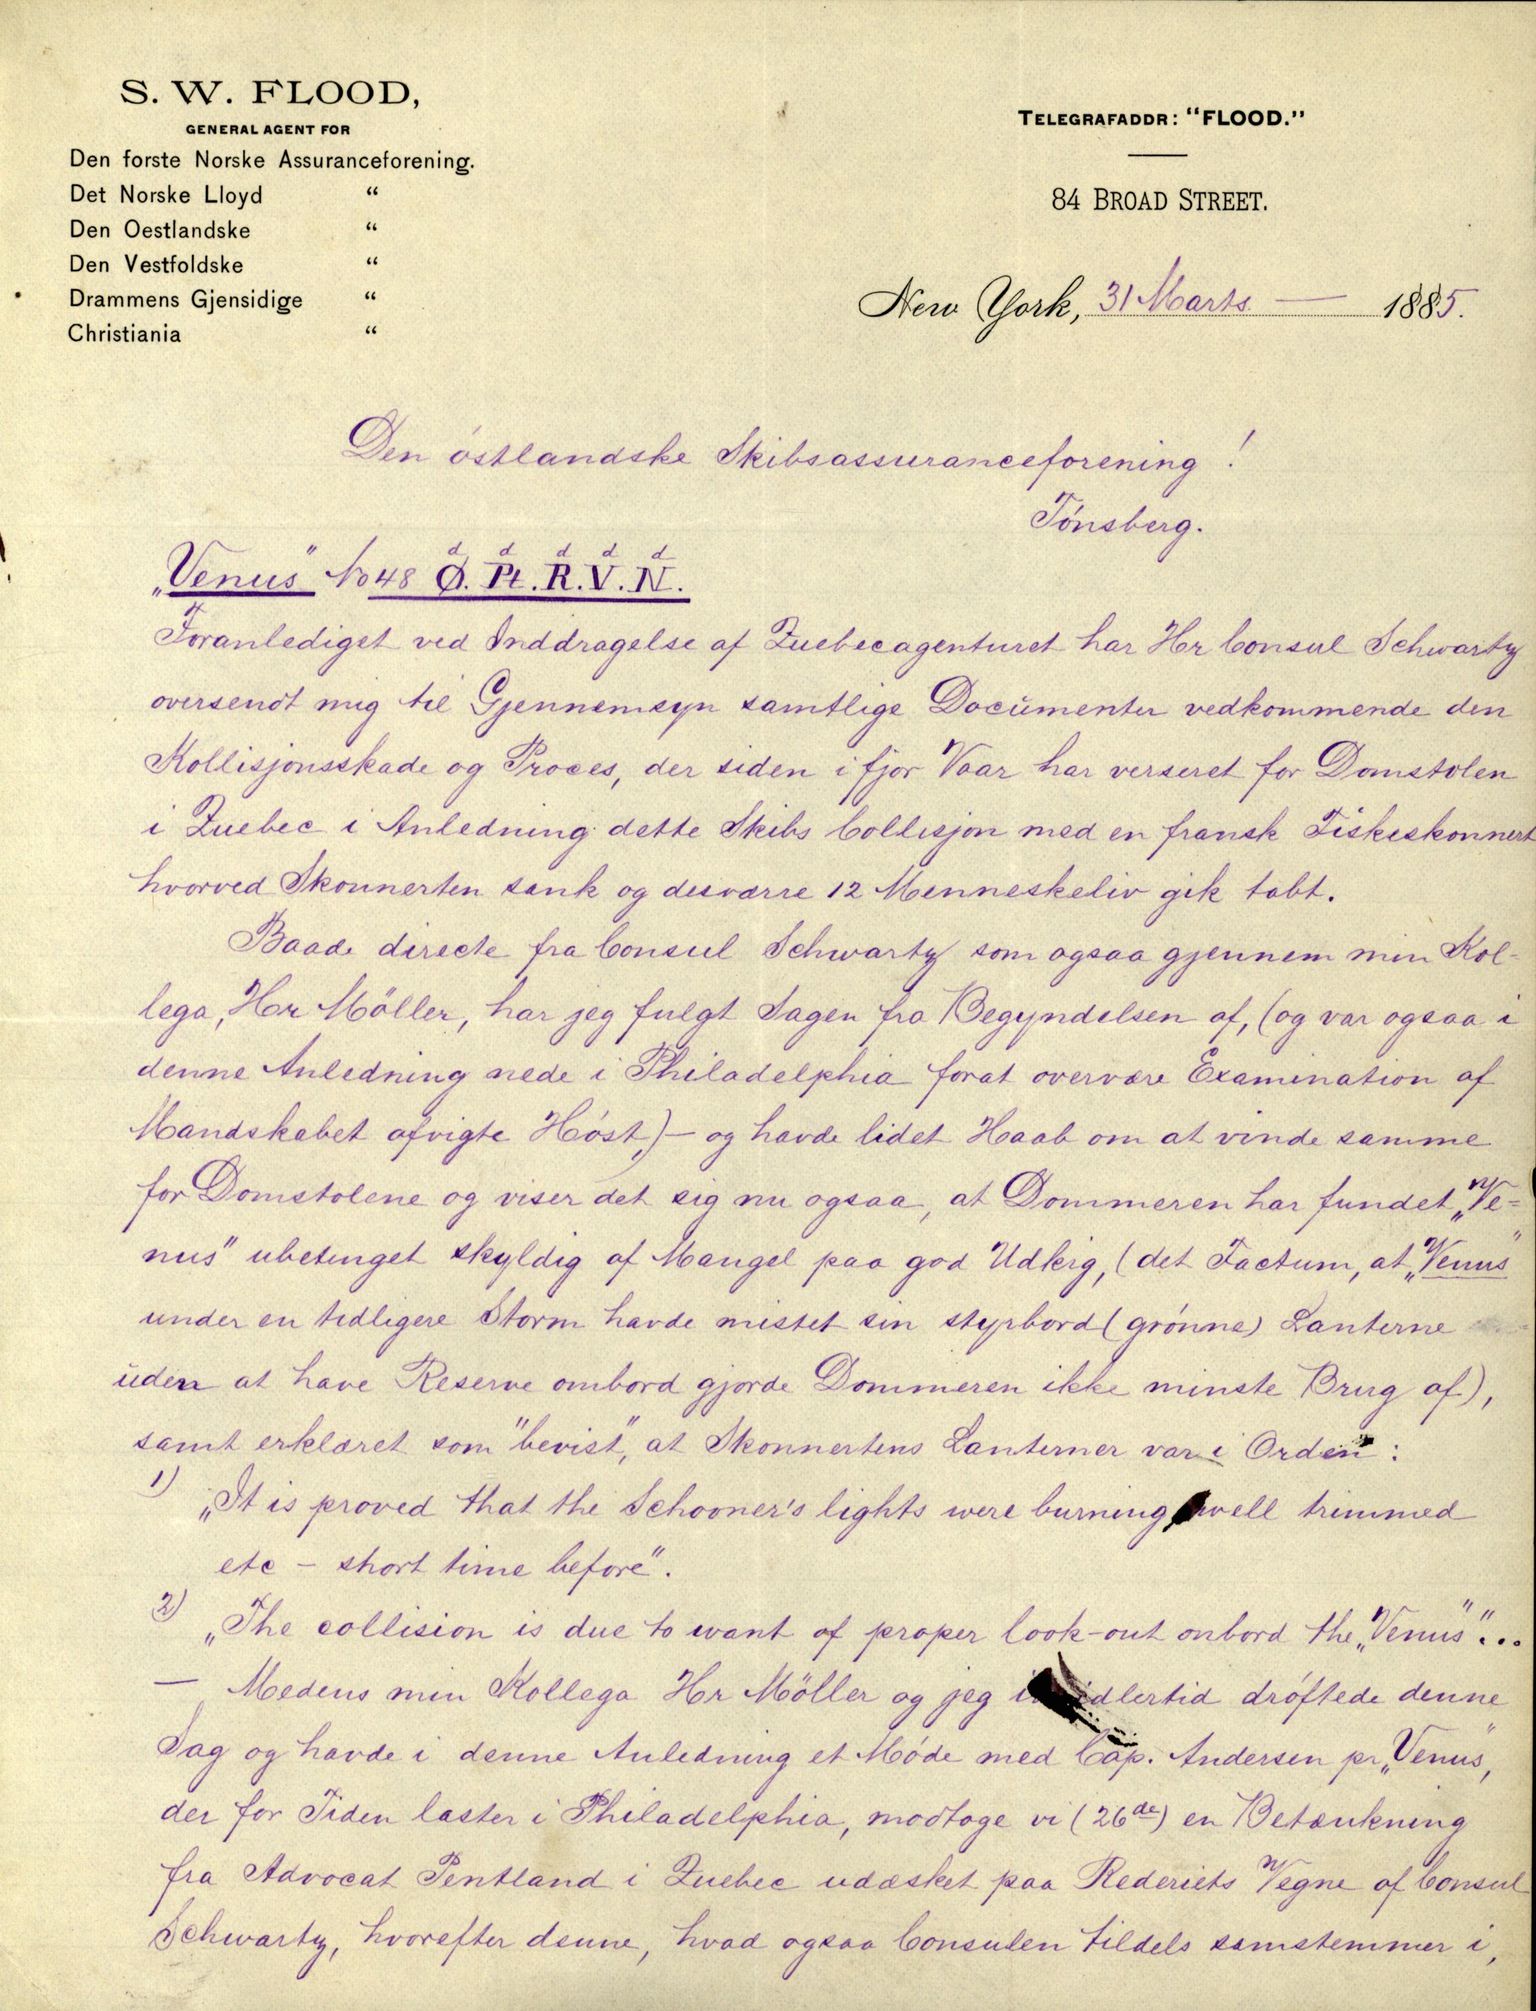 S. W. FLOOD,
GENERAL AGENT FOR
Den forste Norske Assuranceforening.
Det Norske Lloyd "
Den Oestlandske "
Den Vestfoldske "
Drammens Gjensidige "
Christiania "
TELEGRAFADDR: "FLOOD."
84 BROAD STREET.
New York, 31 Marts — 1885.
Den östlandske Skibsassuranceforening!
Tönsberg.
„Venus" No 48 Ø.d Pt.d R.d V.d N.d
Foranlediget ved Inddragelse af Quebecagenturet har Hr Consul Schwartz
oversendt mig til Gjennemsyn samtlige Documenter vedkommende den
Kollisjonsskade og Proces, der siden i fjor Vaar har verseret for Domstolen
i Quebec i Anledning dette Skibs Collisjon med en fransk Fiskeskonnert
hvorved Skonnerten sank og desværre 12 Menneskeliv gik tabt.
Baade directe fra Consul Schwartz som ogsaa gjennem min Kol-
lega, Hr Möller, har jeg fulgt Sagen fra Begyndelsen af, (og var ogsaa i
denne Anledning nede i Philadelphia forat overvære Examination af
Mandskabet afvigte Höst,) — og havde lidet Haab om at vinde samme
for Domstolene og viser det sig nu ogsaa, at Dommeren har fundet „Ve=
nus" ubetinget skyldig af Mangel paa god Udkig, (det Factum, at „Venus"
under en tidligere Storm havde mistet sin styrbord (grönne) Lanterne
uden at have Reserve ombord gjorde Dommeren ikke minste Brug af),
samt erklæret som "bevist", at Skonnertens Lanterner var i Orden:
1) „It is proved that the Schooner's lights were burning well trimmed
etc – short time before".
2) „The collision is due to want of proper look-out onbord the „Venus""...
— Medens min Kollega Hr Möller og jeg imidlertid dröftede denne
Sag og havde i denne Anledning et Möde med Cap. Andersen pr „Venus",
der for Tiden laster i Philadelphia, modtoge vi (26de) en Betænkning
fra Advocat Pentland i Quebec udæsket paa Rederiets Vegne af Consul
Schwartz, hvorefter denne, hvad ogsaa Consulen tildels samstemmer i,